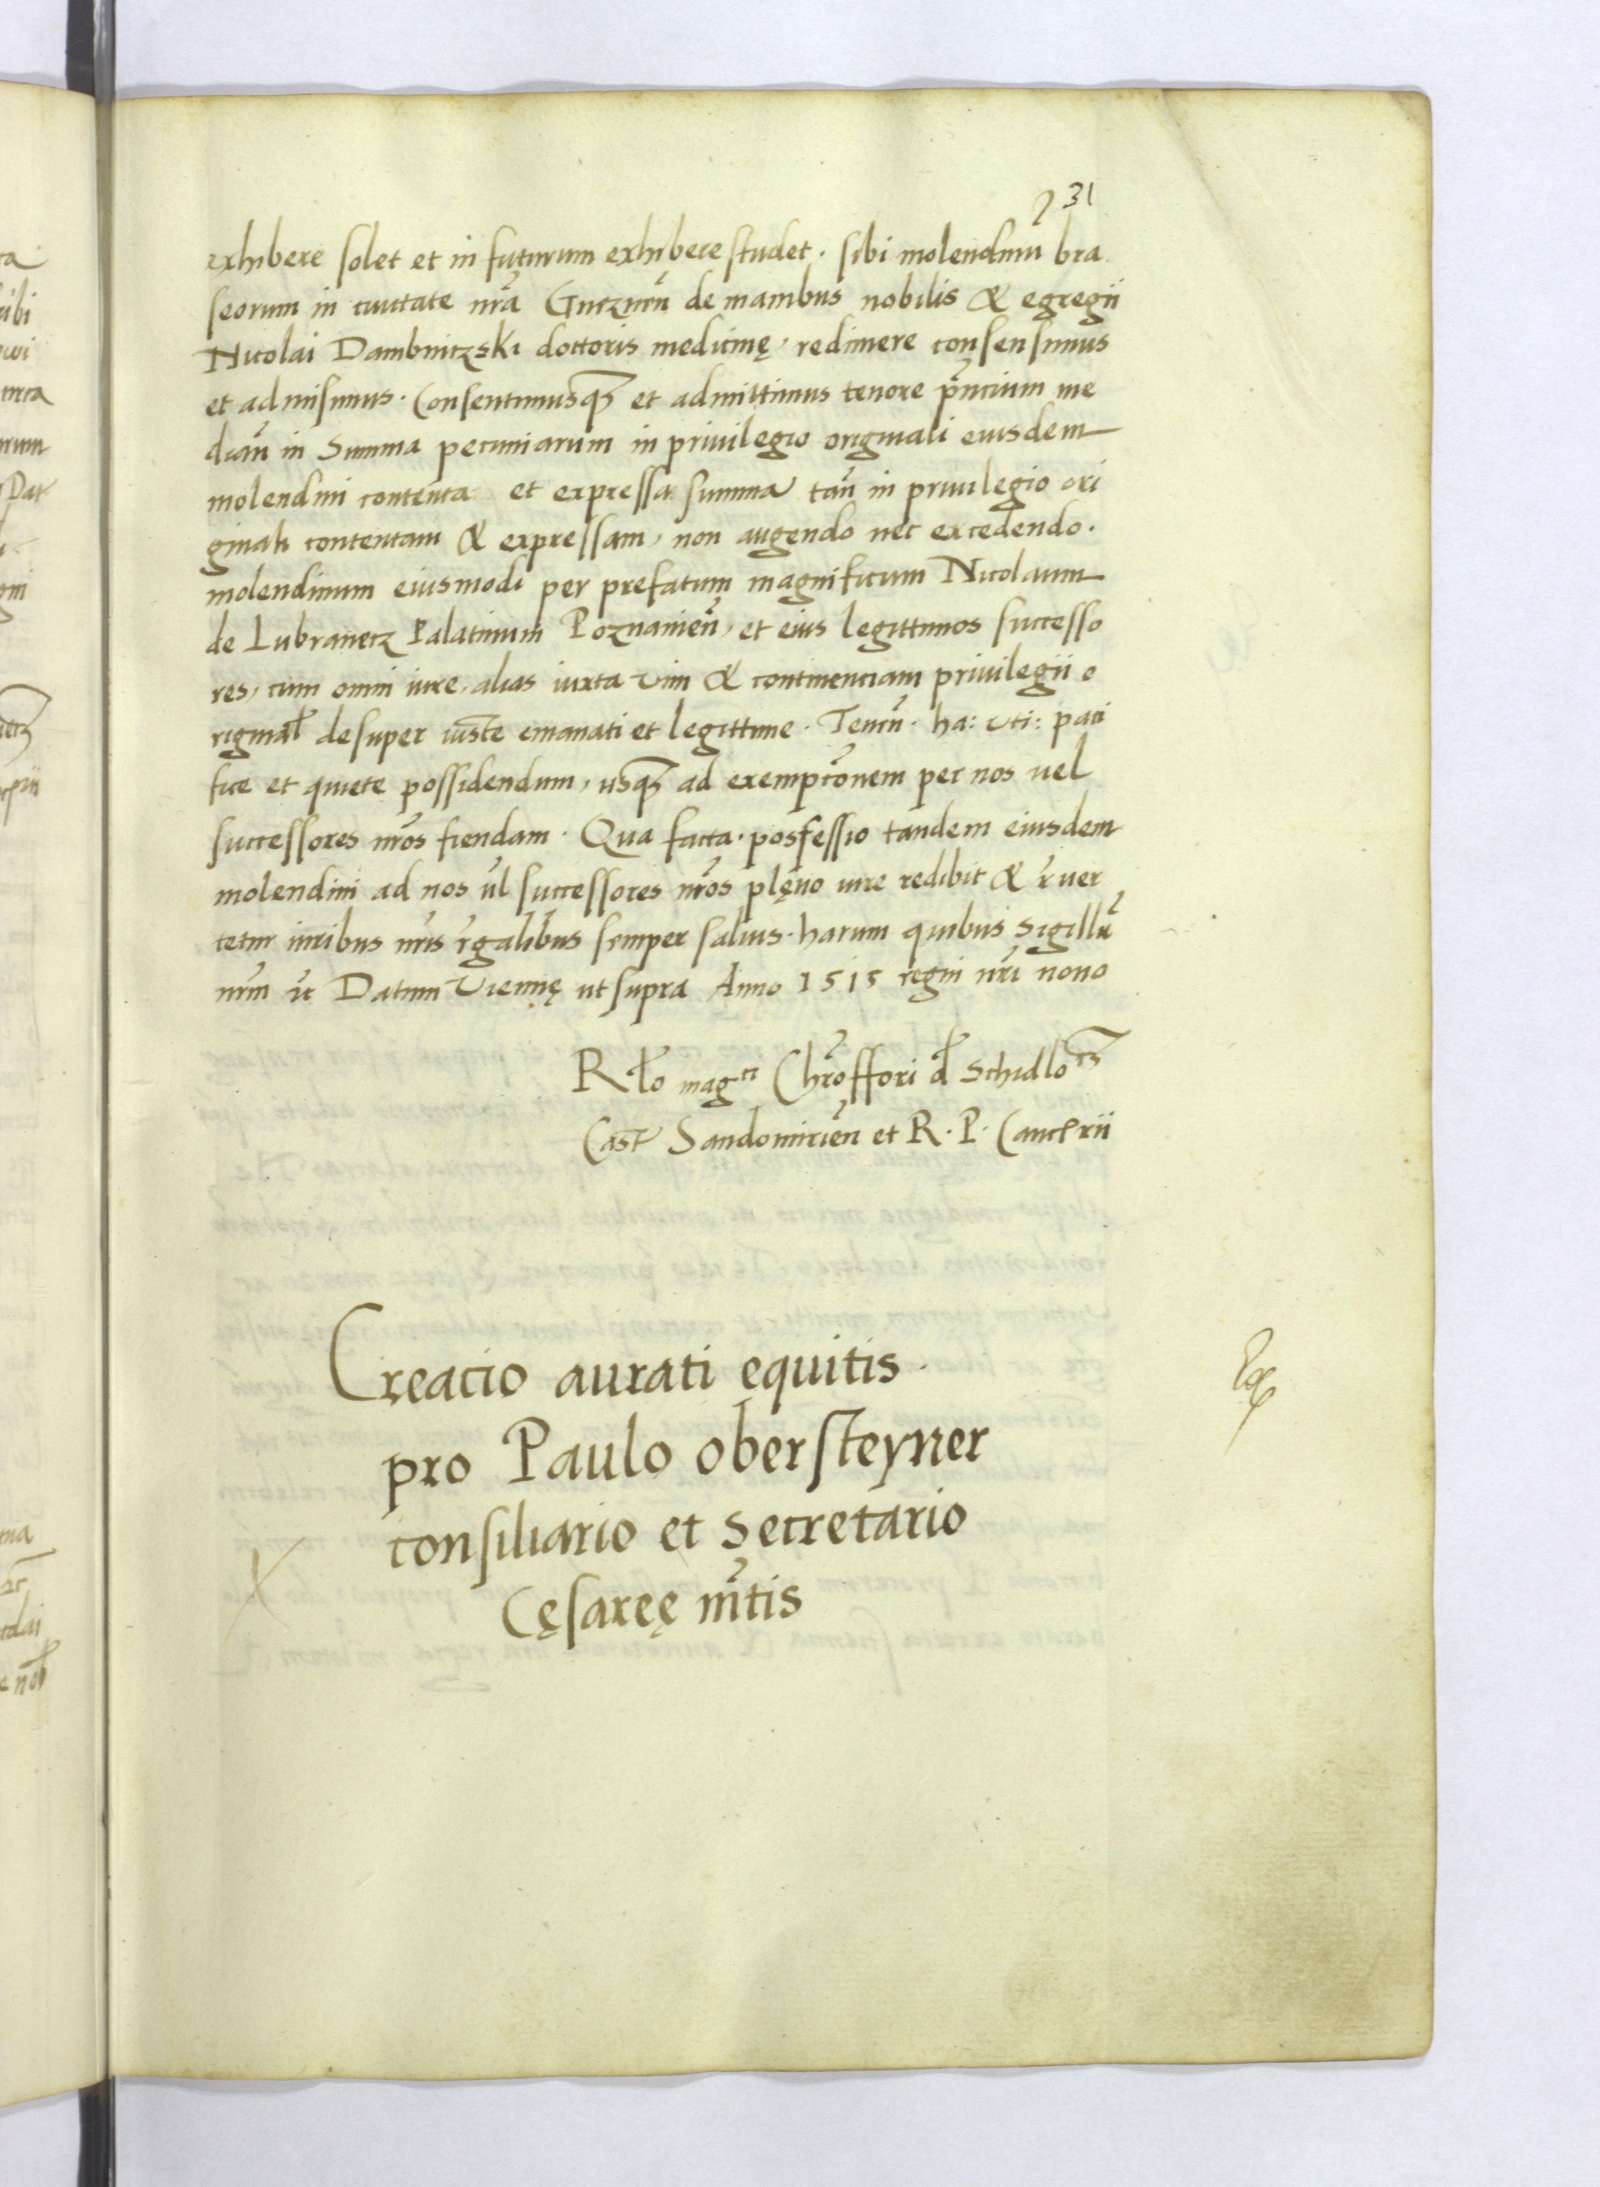 31
exhibere solet et in futurum exhibere studet. sibi molendinū bra
seorum in ciuitate nr̄a Gneznen̄ de manibus nobilis & egregii
Nicolai Dambniczski doctoris medicinę, redimere consensimus
et admisimus. Consentimusq₃ et admittimus tenore pn̄cium me
dian̄ in Summa pecuniarum in priuilegio originali eiusdem
molendini contenta et expressa summa tan̄ in priuilegio ori
ginali contentam & expressam, non augendo nec excedendo.
molendinum eiusmodi per prefatum magnificum Nicolaum
de Lubranecz Palatinum Poznanien̄, et eius legittimos successo
res, cum omni iure, alias iuxta vim & continenciam priuilegii o
riginal̄ desuper iuste emanati et legittime. Tenen̄. ha: vti: paci
fice et quiete possidendum, usq₃ ad exempcōnem per nos uel
successores nr̄os fiendam. Qua facta. possessio tandem eiusdem
molendini ad nos ul̄ successores nr̄os plęno iure redibit & r̄uer
tetur iuribus nr̄is r̄galibus semper saluis. harum quibus Sigillū
nr̄m ꝛc Datum Viennę ut supra Anno 1515 regni nr̄i nono
Rl̄o mag^ci Chrōffori d̄ Schidlo^cz
Cast̄ Sandomirien̄ et R. P. Cancl̄rii
Creacio aurati equitis.
pro Paulo obersteyner
consiliario et Secretario
Cęsareę mt̄is